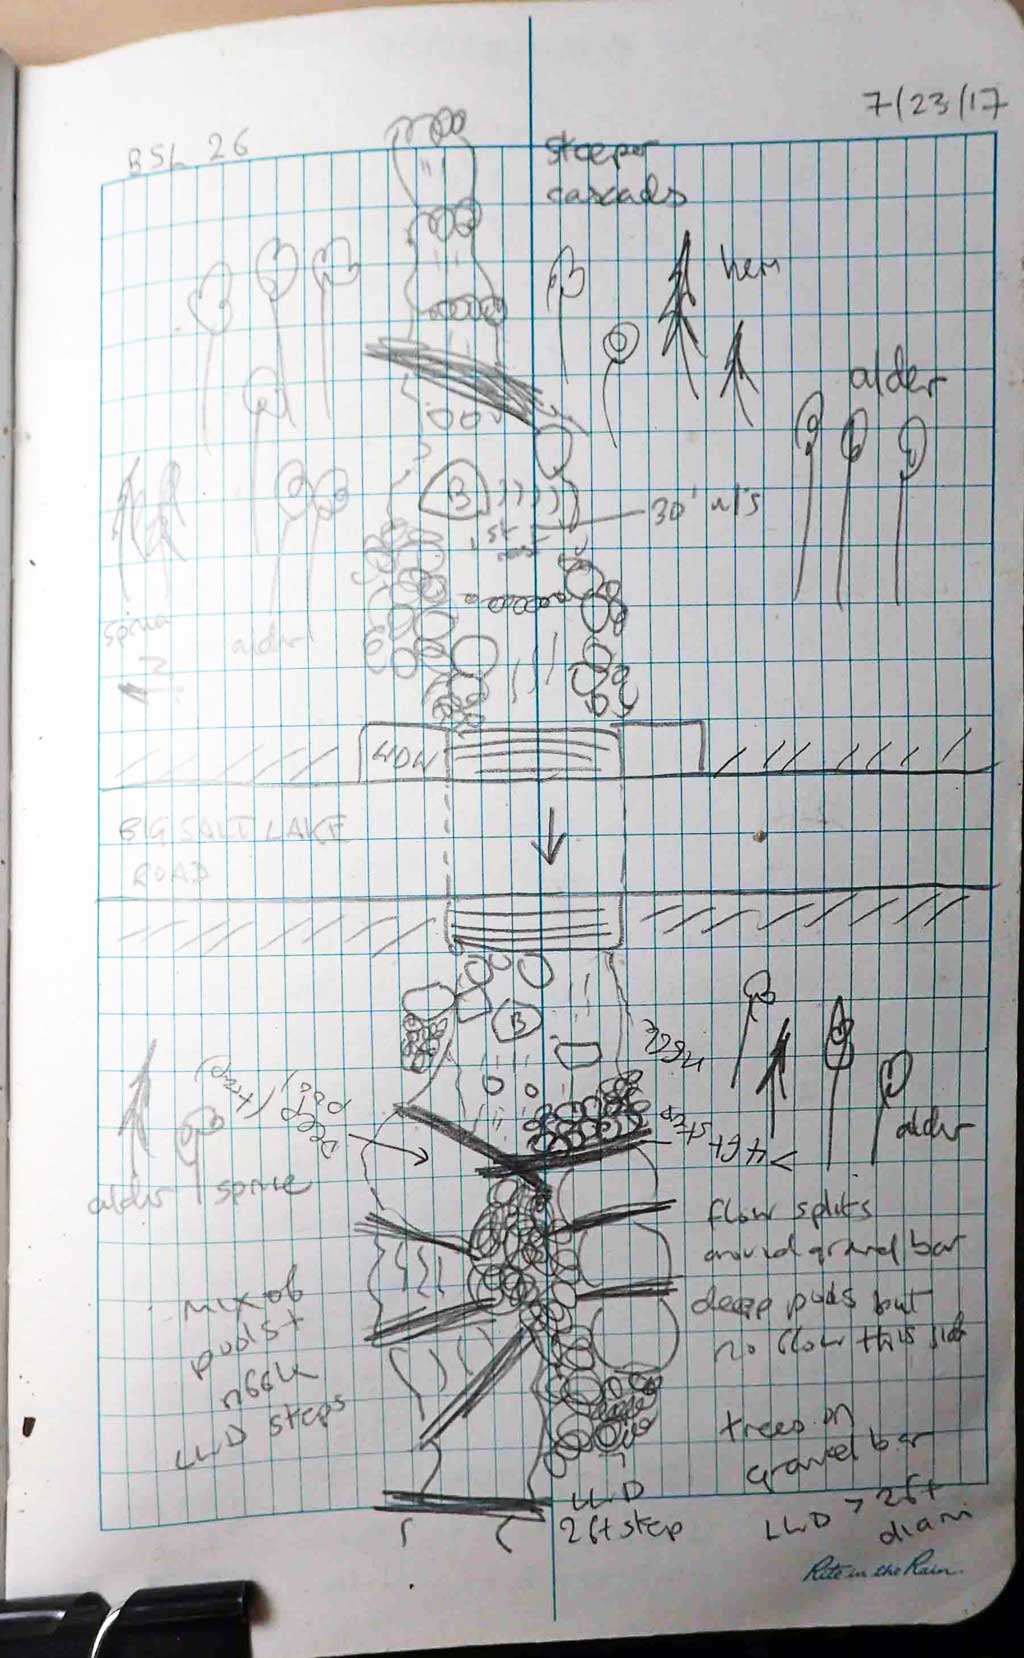 7/23/17
BSL 26
steeper
cascads
hem
alder
B
30' u/s
alder
BIG SALT LAKE
ROAD
B
riffle
Deep
pool (trap)
> 4ft step
alder
alder spruce
flow splits
around gravel bar
deep pools but
no flow this side
mix of
pools +
riffle
LWD steps
trees on
gravel bar
LWD
2ft step
LWD > 2ft
diam
Rite in the Rain.